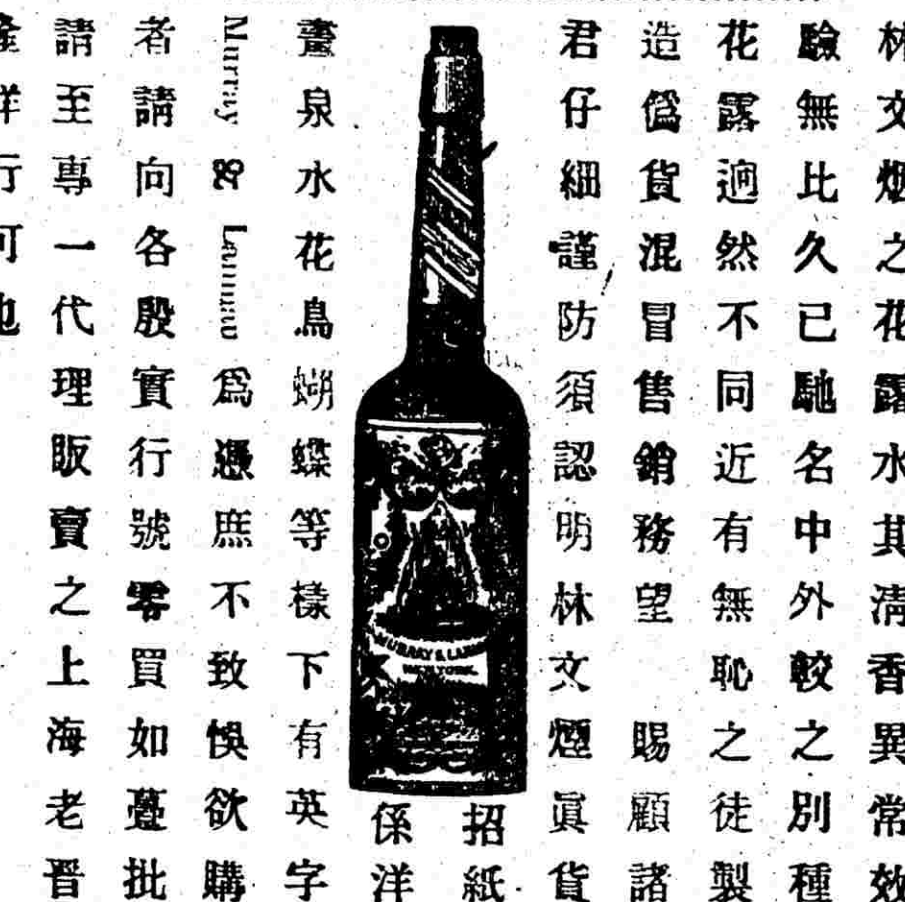 林文烟之花露水其清香異常效
驗無比久已馳名中外較之別種
花露迥然不同近有無恥之徒製
造僞貨混冒售銷務望 賜顧諸
君仔細謹防須認明林文煙眞貨
招紙
係洋
MURRAY & LANMAN
NEW YORK
畫泉水花鳥蝴蝶等樣下有英字
Murray & Lanman 爲憑庶不致悞欲購
者請向各殷實行號零買如躉批
請至專一代理販賣之上海老晋
隆洋行可也